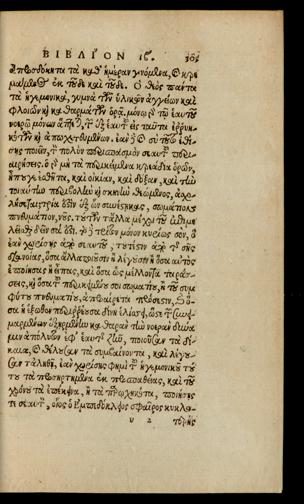 ΒΙΒΛΙΟΝ ιβ.
ἀπροσδόκητα τὰ καθ' ἡμέραν γινόμενα, καὶ κρε-
μάμενος ἐκ τοῦδε καὶ τοῦδε. Ὁ θεὸς πάντα
τὰ ἡγεμονικὰ, γυμνὰ τῶν ὑλικῶν ἀγγείων καὶ
φλοιῶν καὶ καθαρμάτων ὁρᾷ. μόνῳ γὰρ τῷ ἑαυτοῦ
νοερῷ μόνων ἅπτεται, τῶν ἐξ ἑαυτοῦ εἰς ταῦτα ἐρρυη-
κότων καὶ ἀπωχετευμένων. ἐὰν δὲ καὶ σὺ τοῦτο ἐθί-
σῃς ποιεῖν, τὸν πολὺν περισπασμὸν σεαυτοῦ περι-
αιρήσεις. ὁ γὰρ μὴ τὰ περικείμενα κρεάδια ὁρῶν,
ἦπουγε ἐσθῆτα, καὶ οἰκίαν, καὶ δόξαν, καὶ τὴν
τοιαύτην περιβολὴν καὶ σκηνὴν θεώμενος, ἀσχο-
λήσεται; τρία ἐστὶν ἐξ ὧν συνέστηκας, σωμάτιον,
πνευμάτιον, νοῦς. τούτων τἄλλα μέχρι τοῦ ἐπιμε-
λεῖσθαι δεῖν σά ἐστι. τὸ δὲ τρίτον μόνον κυρίως σόν. ὃ
ἐὰν χωρίσῃς ἀπὸ σεαυτοῦ, τουτέστιν ἀπὸ τῆς σῆς
διανοίας, ὅσα ἄλλοι ποιοῦσιν ἢ λέγουσιν ἢ ὅσα αὐτὸς
ἐποίησας ἢ εἶπας, καὶ ὅσα ὡς μέλλοντα ταράσ-
σει, καὶ ὅσα τοῦ περικειμένου σοι σωματίου, ἢ τοῦ συμ-
φύτου πνευματίου, ἀπροαίρετα πρόσεστιν, καὶ ὅ-
σα ἡ ἔξωθεν περιρρέουσα δίνη ἑλίσσει, ὥστε τῶν συνει-
μαρμένων ἐξῃρημένην καθαρὰν τὴν νοερὰν δύνα-
μιν ἀπόλυτον ἐφ' ἑαυτῆς ζῆν, ποιοῦσαν τὰ δί-
καια, καὶ θέλουσαν τὰ συμβαίνοντα, καὶ λέγου-
σαν τἀληθῆ, ἐὰν χωρίσῃς φημὶ τοῦ ἡγεμονικοῦ τού-
του τὰ προσηρτημένα ἐκ προσπαθείας, καὶ τοῦ
χρόνου τὰ ἐπέκεινα, ἢ τὰ παρῳχηκότα, ποιήσῃς
τε σεαυτὸν, οἷος ὁ Ἐμπεδόκλειος σφαῖρος κυκλο-
υ 2 τερὴς